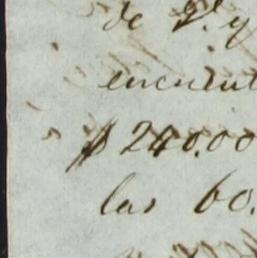 de D. y
encuent
$ 240.00
las 60.